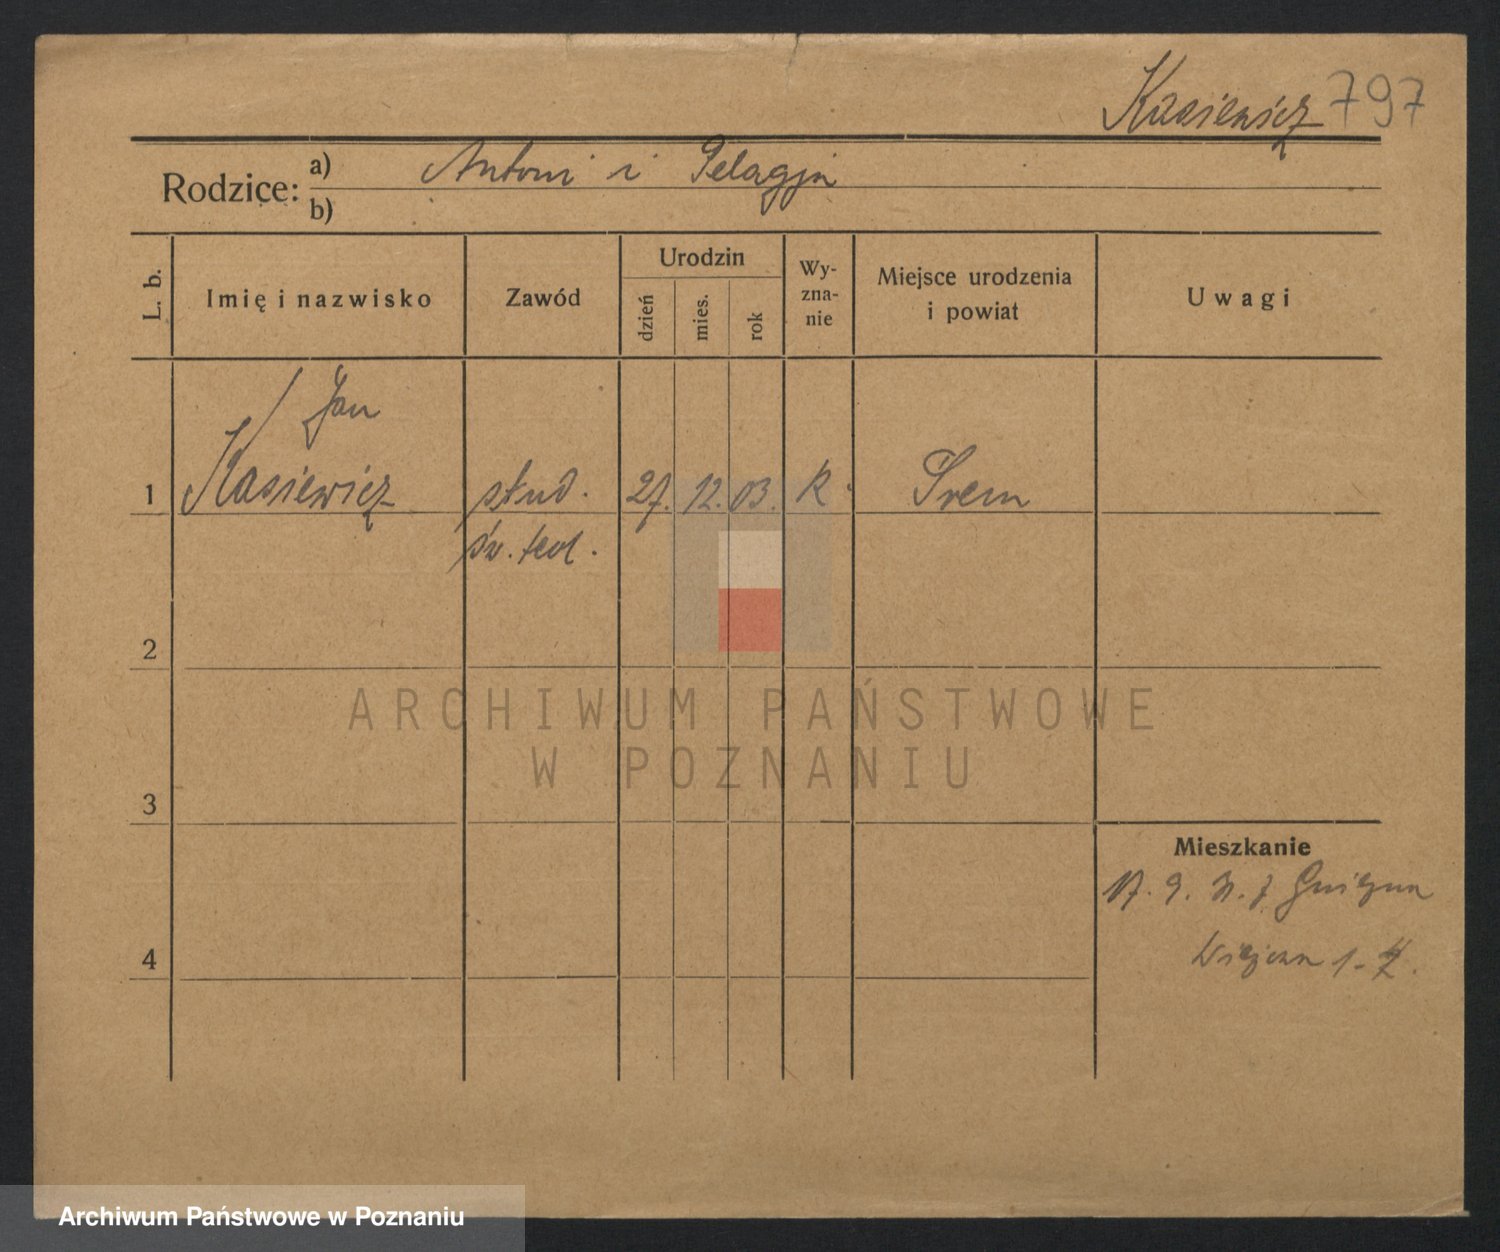 Kasiewicz 797
Rodzice: a) Antoni i Pelagja
b)
L. b.
Imię i nazwisko
Zawód
Urodzin
dzień
mies.
rok
Wy-
zna-
nie
Miejsce urodzenia
i powiat
Uwagi
Jan
1 Kasiewicz stud. 27. 12. 03. k. Śrem
św. teol.
2
3
4
Mieszkanie
17. 9. Gniezna
1-
ARCHIWUM PAŃSTWOWE
W POZNANIU
Archiwum Państwowe w Poznaniu